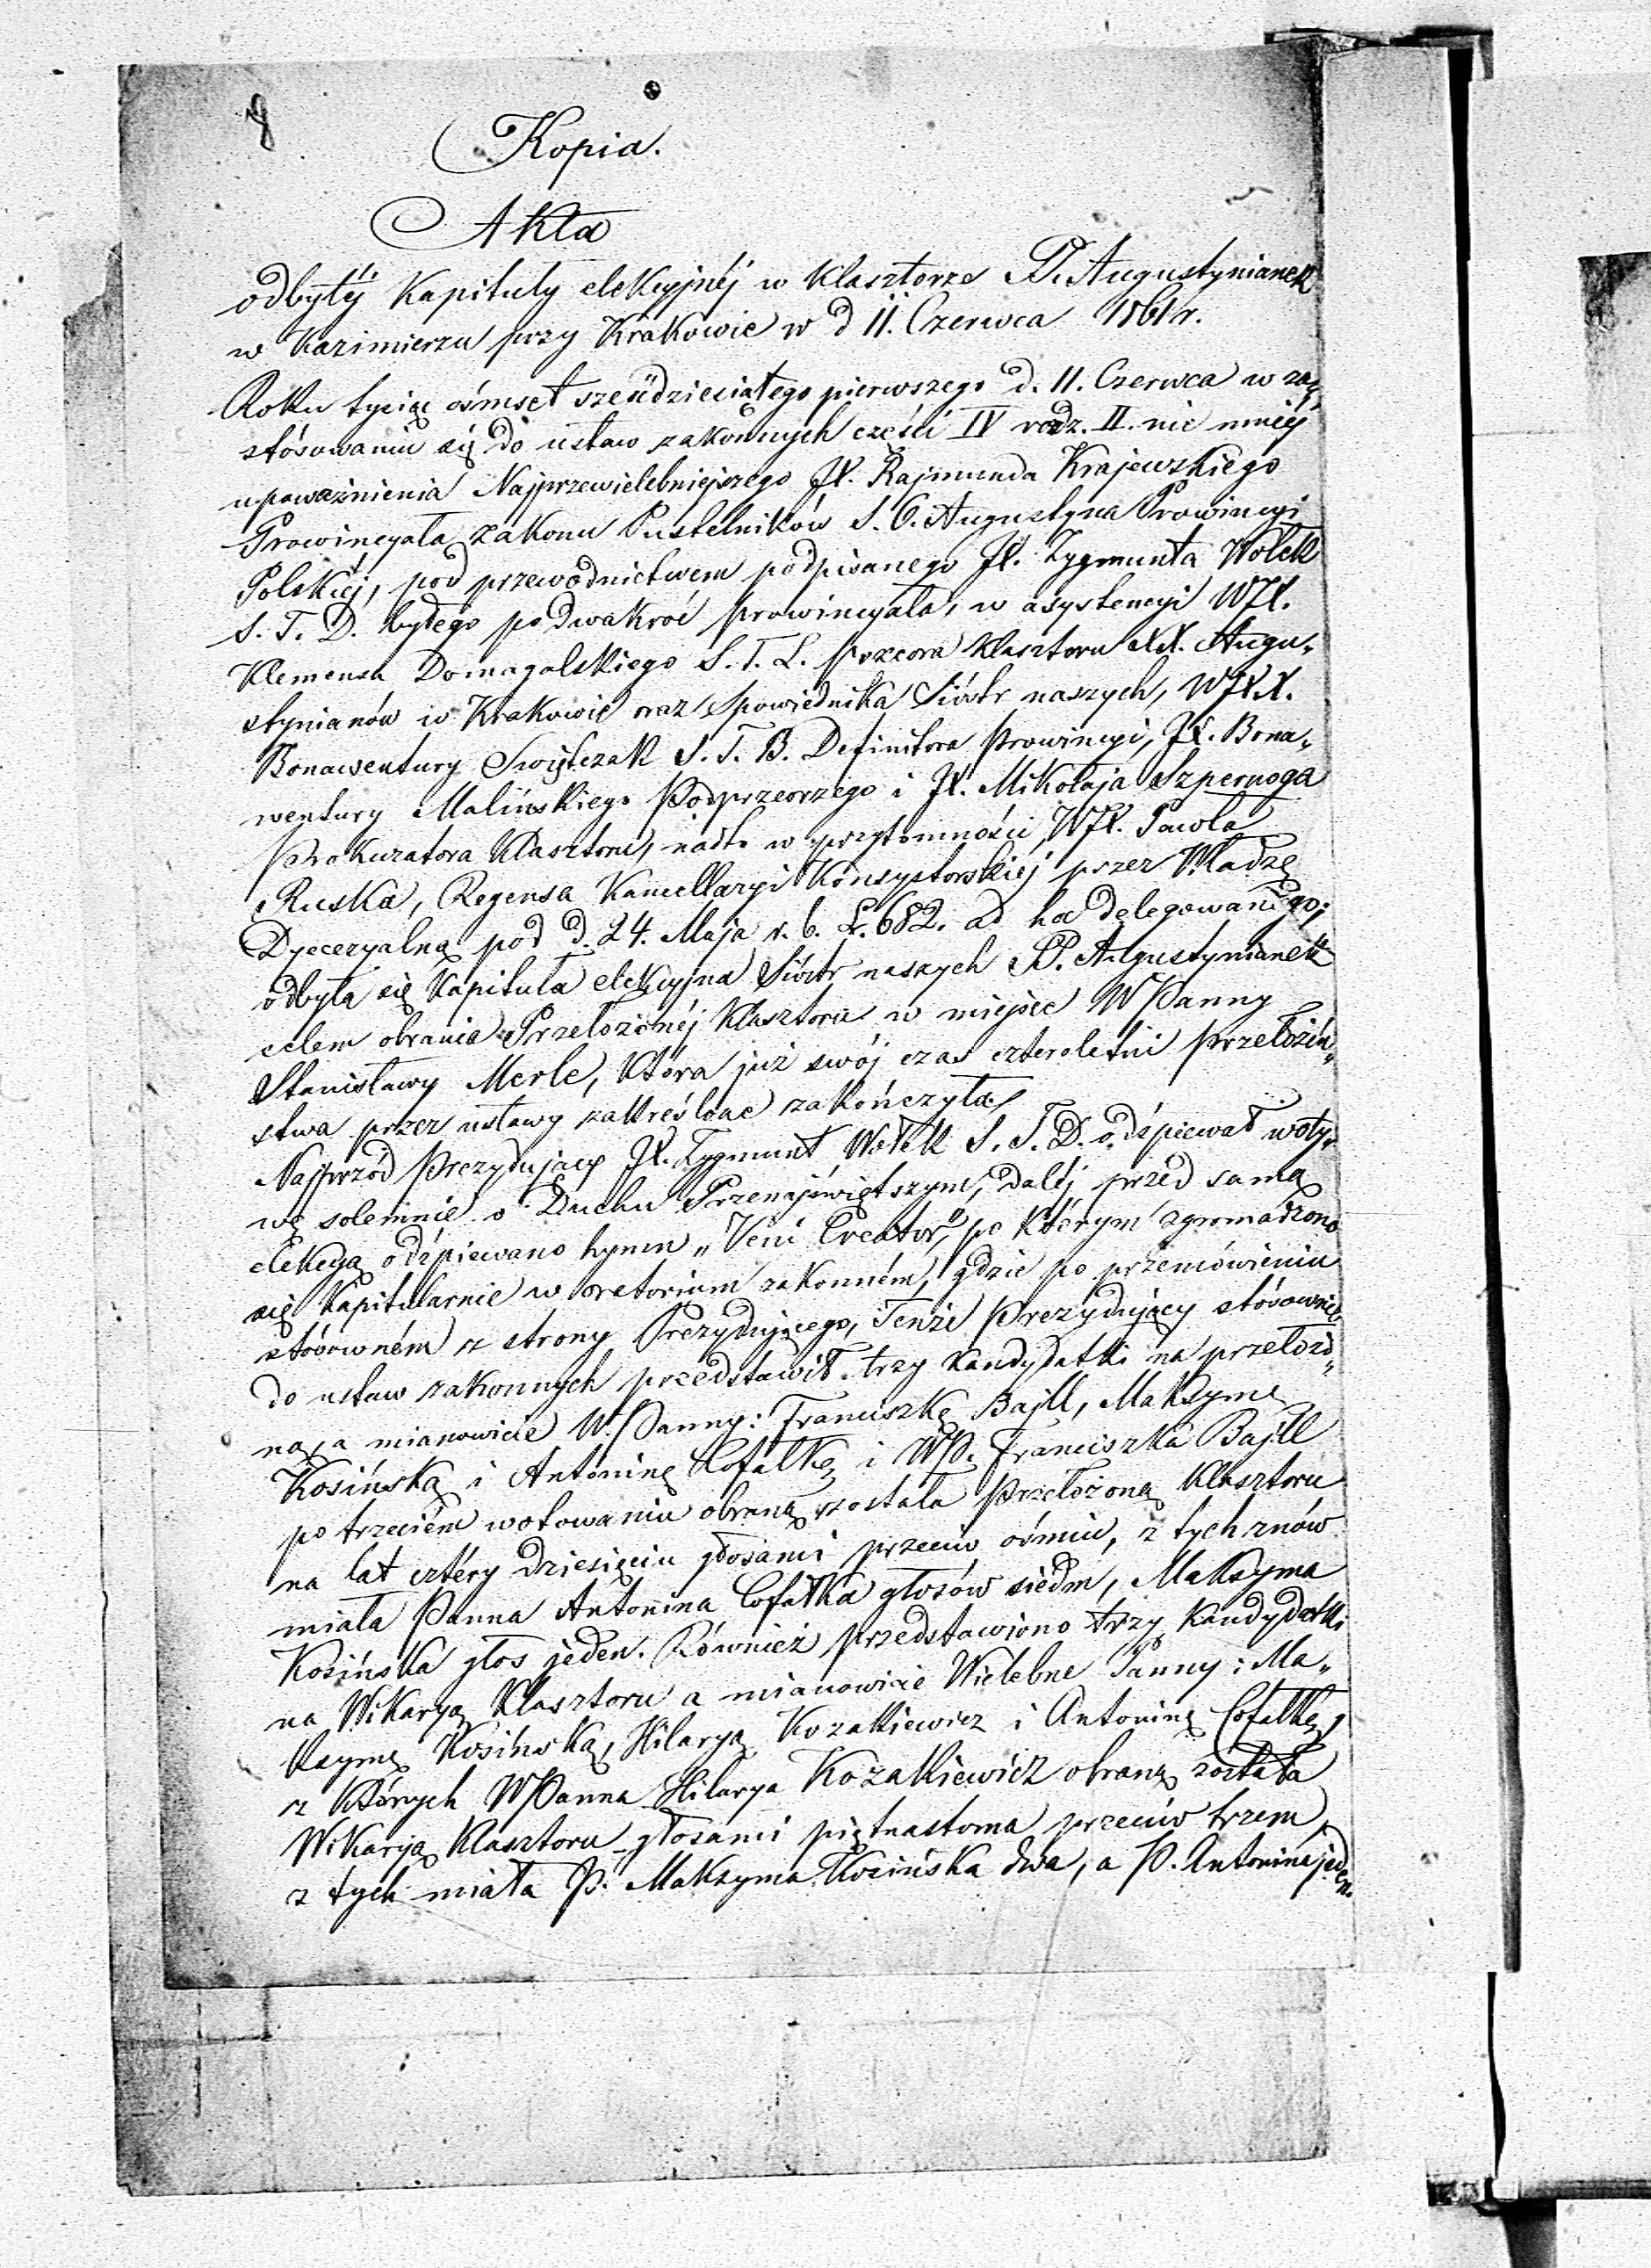 8
Kopia.
Akta
odbytéj Kapituły elekcyjnéj w Klasztorze PP. Augustynianek
w Kazimierzu przy Krakowie w d 11. Czerwca 1861 r.
Roku tysiąc ośmset sześćdziesiątego pierwszego d. 11. Czerwca w za„
stósowaniu się do ustaw zakonnych części IV rodz. II. nie mniéj
upoważnienia Najprzewielebniejszego JX. Rajmunda Krajewskiego
Prowincyała zakonu Pustelników S. O. Augustyna Prowincyi
Polskiéj, pod przewodnictwem podpisanego JX. Zygmunta Wołek
S. T. D. byłego podwakroć prowincyała, w asystencyi WJX.
Klemensa Domagalskiego S. T. L. przeora Klasztoru XX. Augu„
stynianów w Krakowie oraz Spowiednika Sióstr naszych, WJXX.
Bonawentury Swiętczak S. T. B. Definitora prowincyi, JX. Bona„
wentury Malińskiego Podprzeorzego i JX. Mikołaja Szpernoga
Prokuratora Klasztoru, nadto w przytomności WJX. Pawła
Ruska, Regensa Kancellaryi Konsystorskiéj przez Władzę
Dyecezyalną pod d. 24. Maja r. b. L. 682. ad hoc delegowanego;
odbyła się Kapituła elekcyjna Sióstr naszych PP. Augustynianek
celem obrania Przełożonéj Klasztoru w miejsce WPanny
Stanisławy Merle, Która już swój czas czteroletni przełożeń„
stwa przez ustawy zakreślone zakończyła.
Najprzód Prezydujący JX. Zygmunt Wołek S. T. D. odśpiewał woty„
wę solemnie o Duchu Przenajświętszym, daléj przed samą
elekcyą odśpiewano hymn „Veni Creator", po Którym zgromadzono
się Kapitularnie w oratorium zakonném, gdzie po przemówieniu
stósowném z strony Prezydującego, Tenże Prezydujący stósownie
do ustaw zakonnych przedstawił trzy Kandydatki na przełożo„
ną, a mianowicie W. Panny: Franciszkę Bajll, Maksymę
Kosińską i Antoninę Cofałkę i WP. Franciszka Bajll
po trzeciém wotowaniu obraną została Przełożoną Klasztoru
na lat cztéry dziesięciu głosami przeciw ośmiu, z tych znów
miała Panna Antonina Cofałka głosów siedm, Maksyma
Kosińska głos jeden. Również przedstawiono trzy Kandydatki
na Wikaryą Klasztoru a mianowicie Wielebne Panny: Ma„
ksymę Kosińską, Hilaryą Kozakiewicz i Antoninę Cofałkę,
z Których WPanna Hilarya Kozakiewicz obraną została
Wikaryą Klasztoru głosami piętnastoma przeciw trzem,
z tych miała P. Maksyma Kosińska dwa, a P. Antonina jeden.